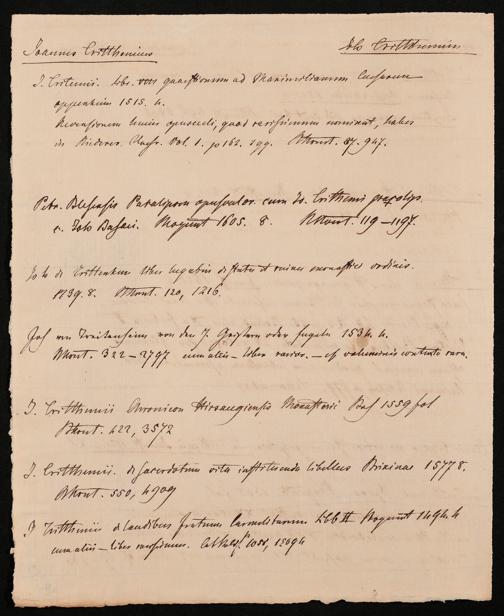 Joannes Tritthemius Joh Tritthemius
J. Tritemii. Libr. VIII quaestionum ad Maximilianum Caesarem
oppenheim 1515. 4.
Recensionem huius opusculi, quod rarissimum nominant, habes
in Riederer Nachr. Vol. 1. p 162. sqq. Bibl. 87. 947.
Petr. Blesensis Paralipom opusculor. cum Jo. Trithemii
c. Joh Busaei. Mogunt 1605. 8. 119–1197.
Joh de Trittenhem liber lugubris de statu et ruina monastici ordinis.
8. 120, 1216.
Joh von Trittenheim von den 7. Geistern oder Engeln 1534. 4.
322–2797 cum aliis – liber rarior. – et voluminis contenta rara.
J. Tritthemii Chronicon Hirsaugiensis Monasterii Bas 1559 fol
422, 3572
J. Tritthemii. de sacerdotum vita instituenda libellus Brixinae 1577 8.
550, 4909
J Tritthemii de laudibus fratrum Carmelitarum Libb II Mogunt 1494. 4
cum aliis – liber rarissimus. 1055, 15094